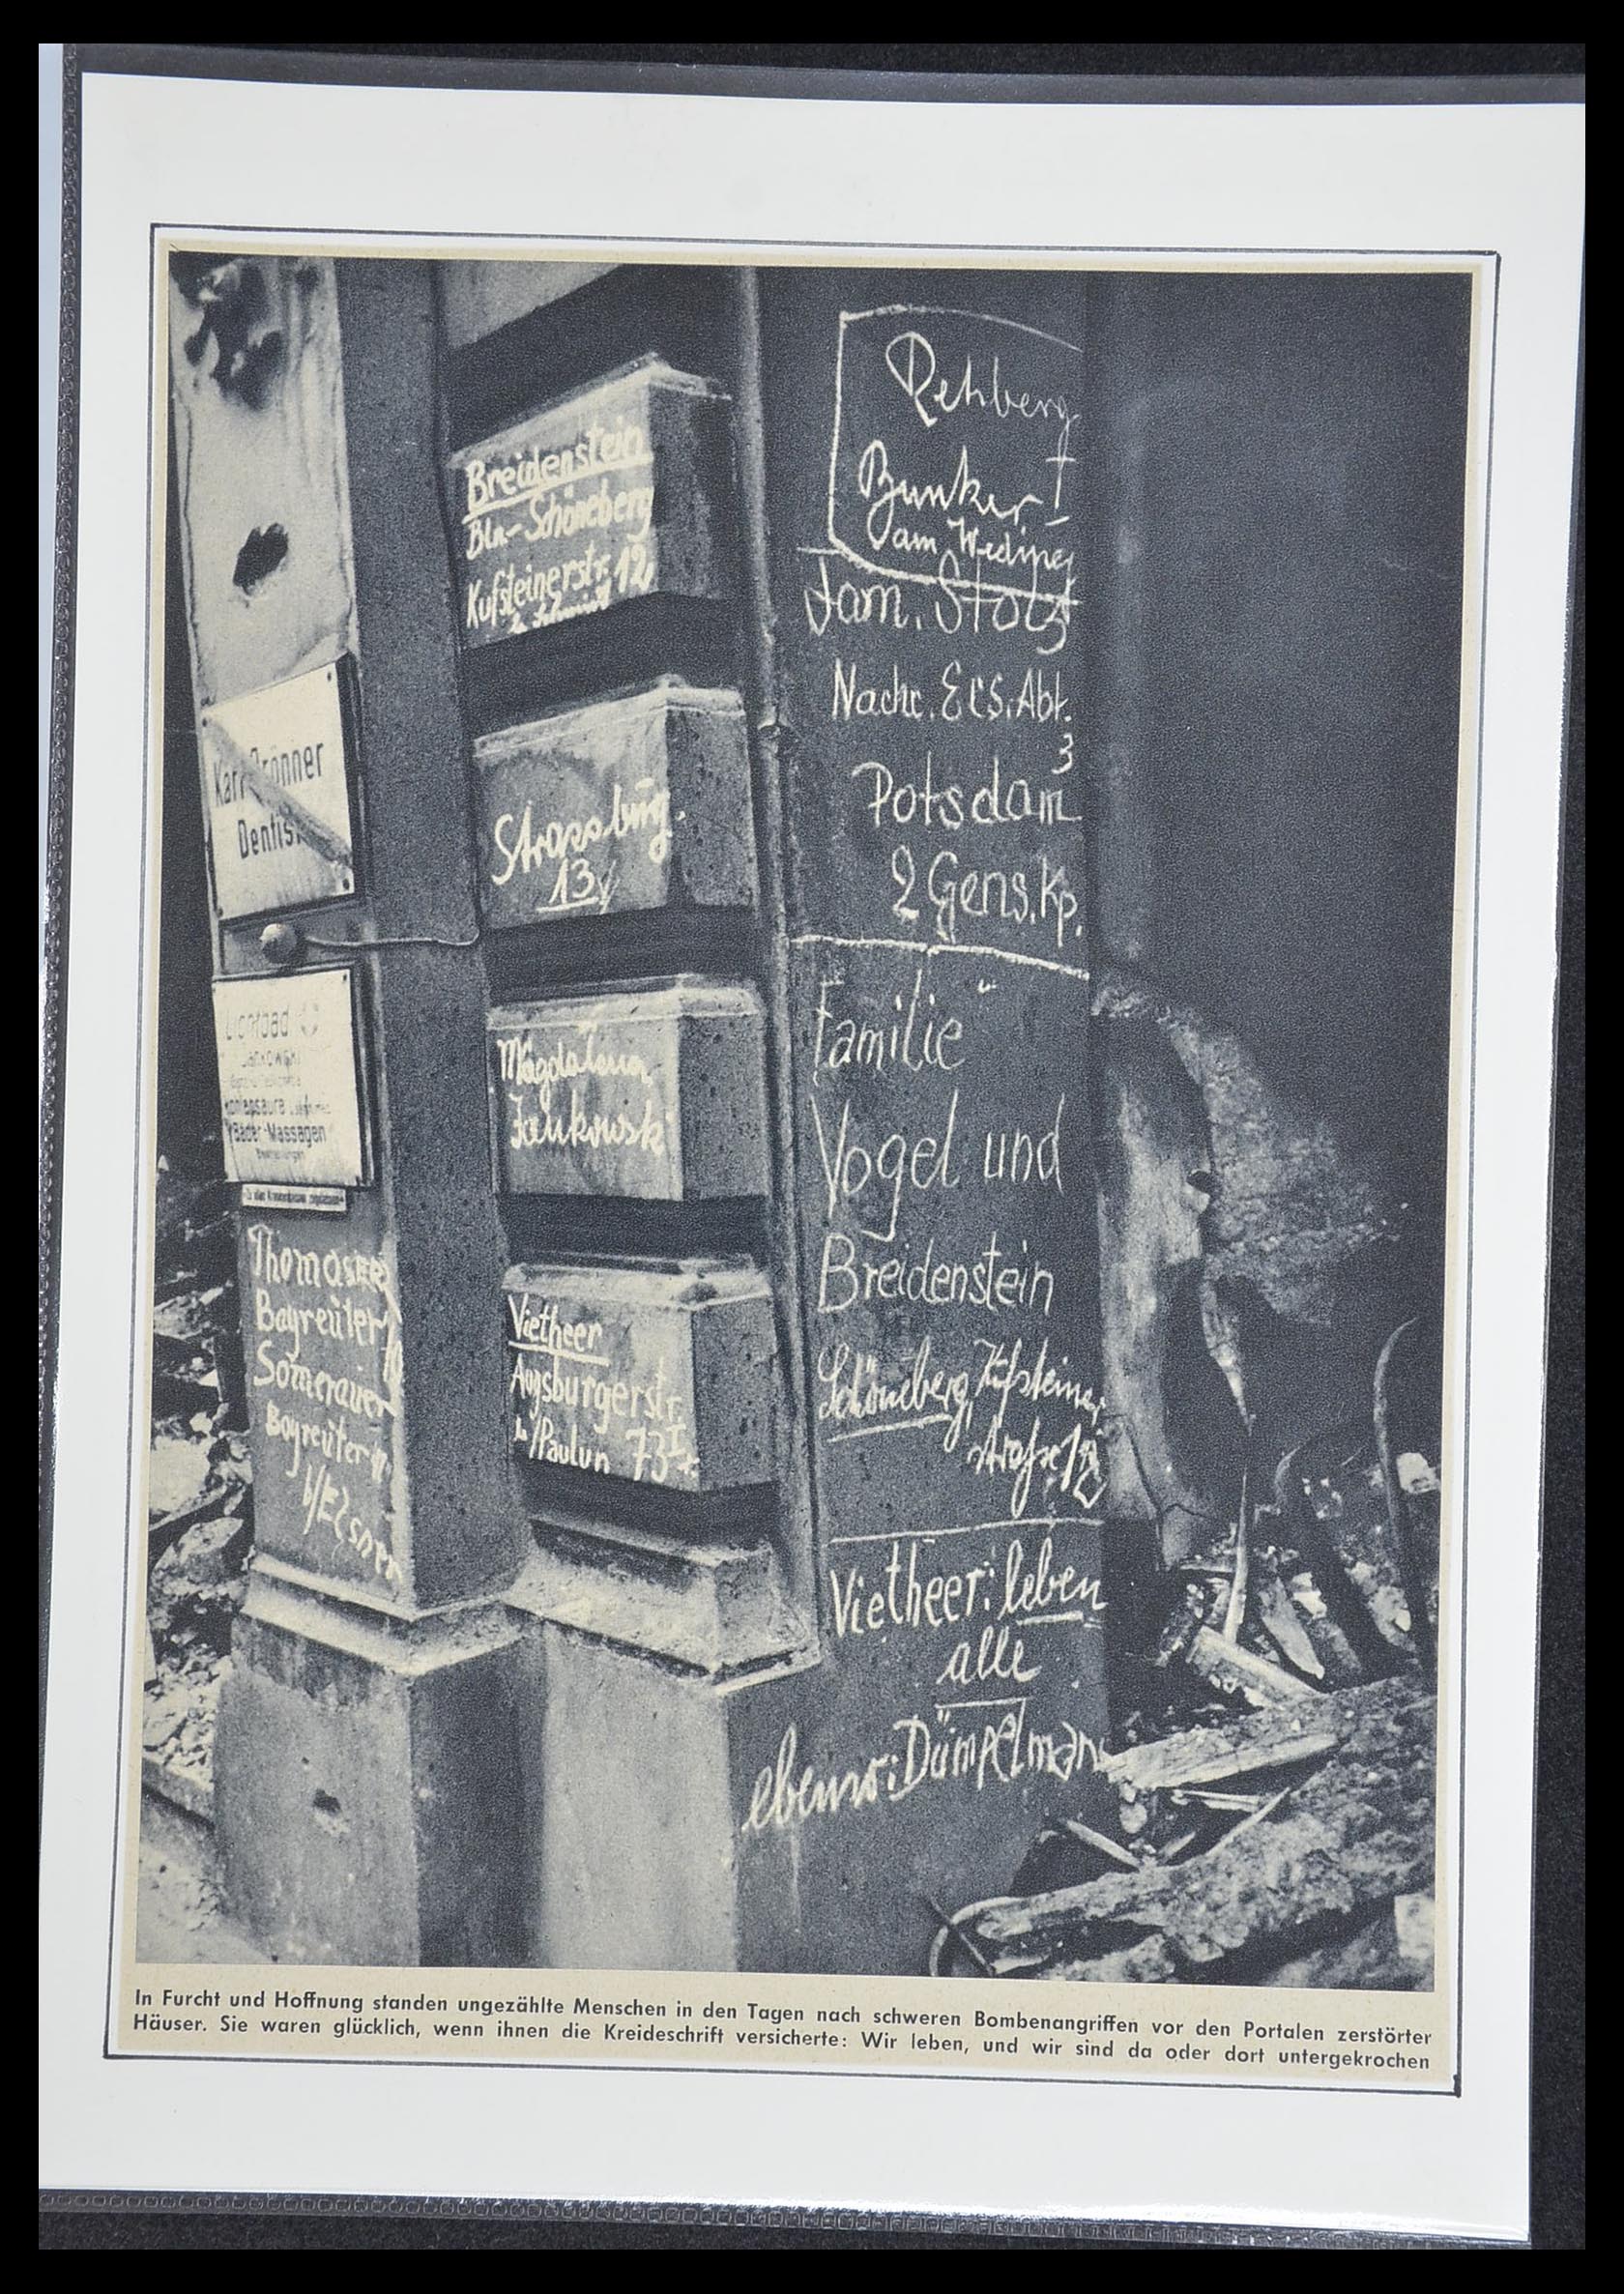 Karl Brönner
Dentist
Lichtbad
Bäder-Massagen
Thomas
Bayreuter
Bayreuter
b/Elsner
Breidenstein
Bln-Schöneberg
Kufsteinerstr. 12
b. Schmidt
Strassburg.
13
Magdalena
Jankowski
Vietheer
Augsburgerstr.
b/Paulun 73 I
Rehberg
Bunker
am Weding
Fam. Stolz
Nachr. Ers. Abt.
3
Potsdam
2 Gens. Kp.
Familie
Vogel und
Breidenstein
Schöneberg, Kufsteiner
straße 12
Vietheer: leben
alle
ebenso: Dümpelmann
In Furcht und Hoffnung standen ungezählte Menschen in den Tagen nach schweren Bombenangriffen vor den Portalen zerstörter
Häuser. Sie waren glücklich, wenn ihnen die Kreideschrift versicherte: Wir leben, und wir sind da oder dort untergekrochen